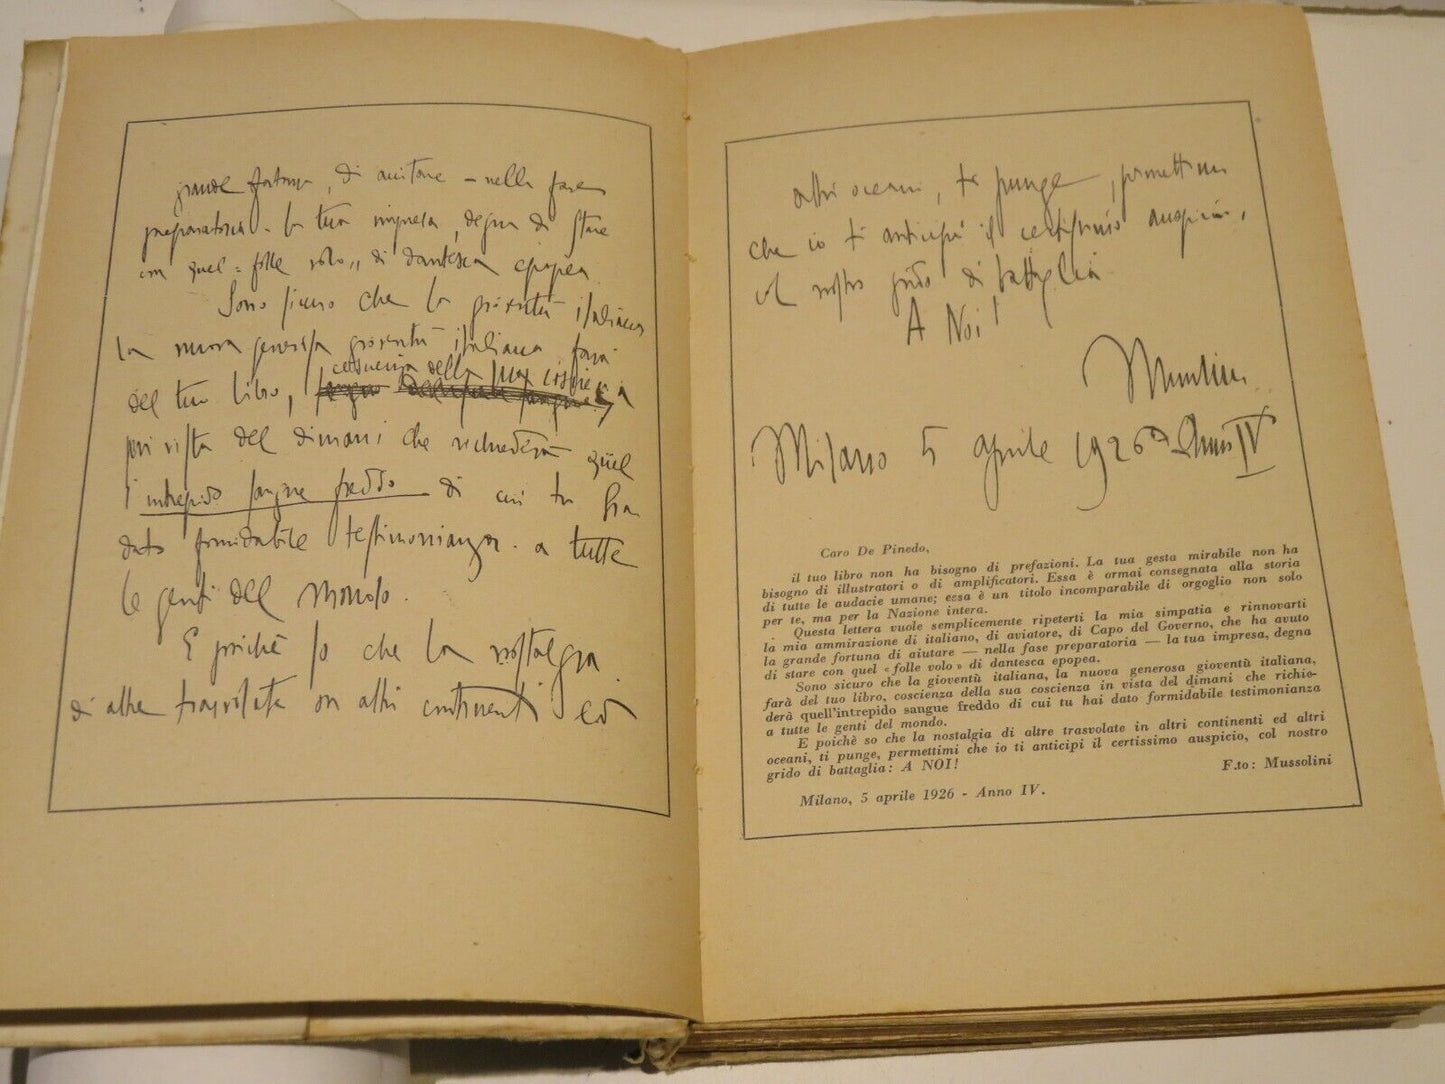 grande fortuna, di aiutare – nella fase
preparatoria – la tua impresa, degna di stare
con quel "folle volo" di dantesca epopea.
Sono sicuro che la gioventù italiana
la nuova generosa gioventù italiana farà
coscienza della sua coscienza
del tuo libro,
in vista del dimani che richiederà quel
l'intrepido sangue freddo di cui tu hai
dato formidabile testimonianza a tutte
le genti del mondo.
E poichè so che la nostalgia
di altre trasvolate in altri continenti ed
altri oceani, ti punge, permettimi
che io ti anticipi il certissimo auspicio,
col nostro grido di battaglia
A Noi!
Mussolini
Milano 5 aprile 1926 Anno IV
Caro De Pinedo,
il tuo libro non ha bisogno di prefazioni. La tua gesta mirabile non ha
bisogno di illustratori o di amplificatori. Essa è ormai consegnata alla storia
di tutte le audacie umane; essa è un titolo incomparabile di orgoglio non solo
per te, ma per la Nazione intera.
Questa lettera vuole semplicemente ripeterti la mia simpatia e rinnovarti
la mia ammirazione di italiano, di aviatore, di Capo del Governo, che ha avuto
la grande fortuna di aiutare — nella fase preparatoria — la tua impresa, degna
di stare con quel « folle volo » di dantesca epopea.
Sono sicuro che la gioventù italiana, la nuova generosa gioventù italiana,
farà del tuo libro, coscienza della sua coscienza in vista del dimani che richie-
derà quell'intrepido sangue freddo di cui tu hai dato formidabile testimonianza
a tutte le genti del mondo.
E poichè so che la nostalgia di altre trasvolate in altri continenti ed altri
oceani, ti punge, permettimi che io ti anticipi il certissimo auspicio, col nostro
grido di battaglia: A NOI!
F.to: Mussolini
Milano, 5 aprile 1926 - Anno IV.